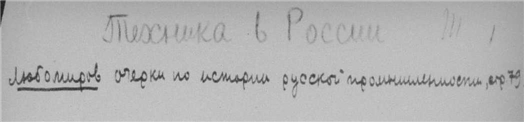 Техника в России Т 1
Любомиров очерки по истории русской промышленности, стр 79